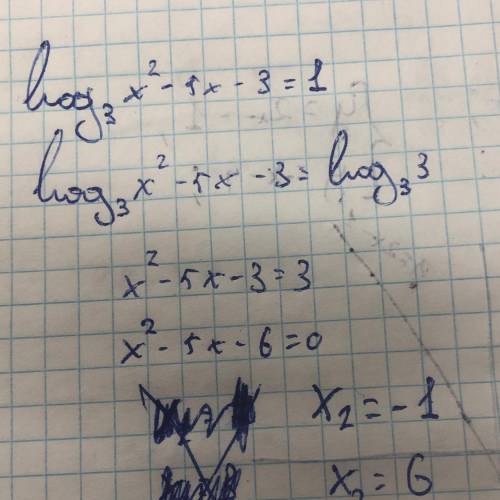 log₃ x² - 5x - 3 = 1
log₃ x² - 5x - 3 = log₃ 3
x² - 5x - 3 = 3
x² - 5x - 6 = 0
x₂ = -1
x₂ = 6